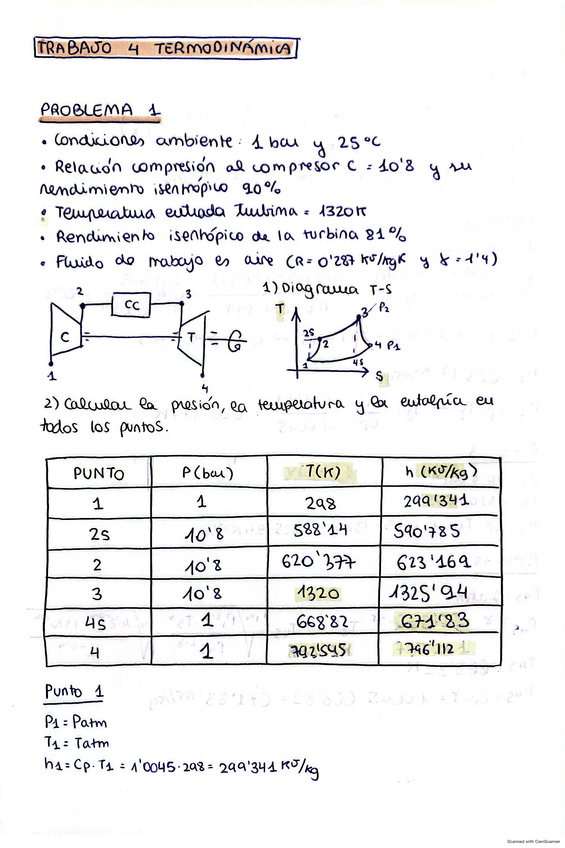 TRABAJO 4 TERMODINÁMICA
PROBLEMA 1
• Condiciones ambiente: 1 bar y 25 °C
• Relación compresión al compresor C = 10'8 y su
rendimiento isentrópico 90%
• Temperatura entrada Turbina = 1320 K
• Rendimiento isentópico de la turbina 81%
• Fluido de trabajo es aire (R = 0'287 KJ/kgK y γ = 1'4)
1) Diagrama T-S
2 CC 3
C T
1
4
T
3 P2
2S 2
4 P1
1 4S
S
2) Calcular la presión, la temperatura y la entalpía en
todos los puntos.
PUNTO P (bar) T(K) h (KJ/kg)
1 1 298 299'341
2s 10'8 588'14 590'785
2 10'8 620'377 623'169
3 10'8 1320 1325'94
4s 1 668'82 671'83
4 1 792'545 796'112
Punto 1
P1 = Patm
T1 = Tatm
h1 = Cp · T1 = 1'0045 · 298 = 299'341 KJ/kg
Scanned with CamScanner